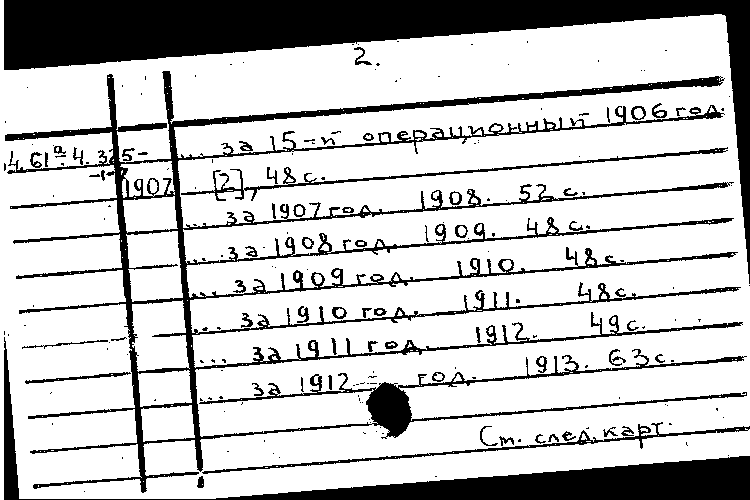 2.
... за 15-й операционный 1906 год.
4.61а-4.325-
-1-2
1907 [2], 48 с.
... за 1907 год. 1908. 52 с.
... за 1908 год. 1909. 48 с.
... за 1909 год. 1910. 48 с.
... за 1910 год. 1911. 48 с.
... за 1911 год. 1912. 49 с.
... за 1912 год. 1913. 63 с.
См. след. карт.